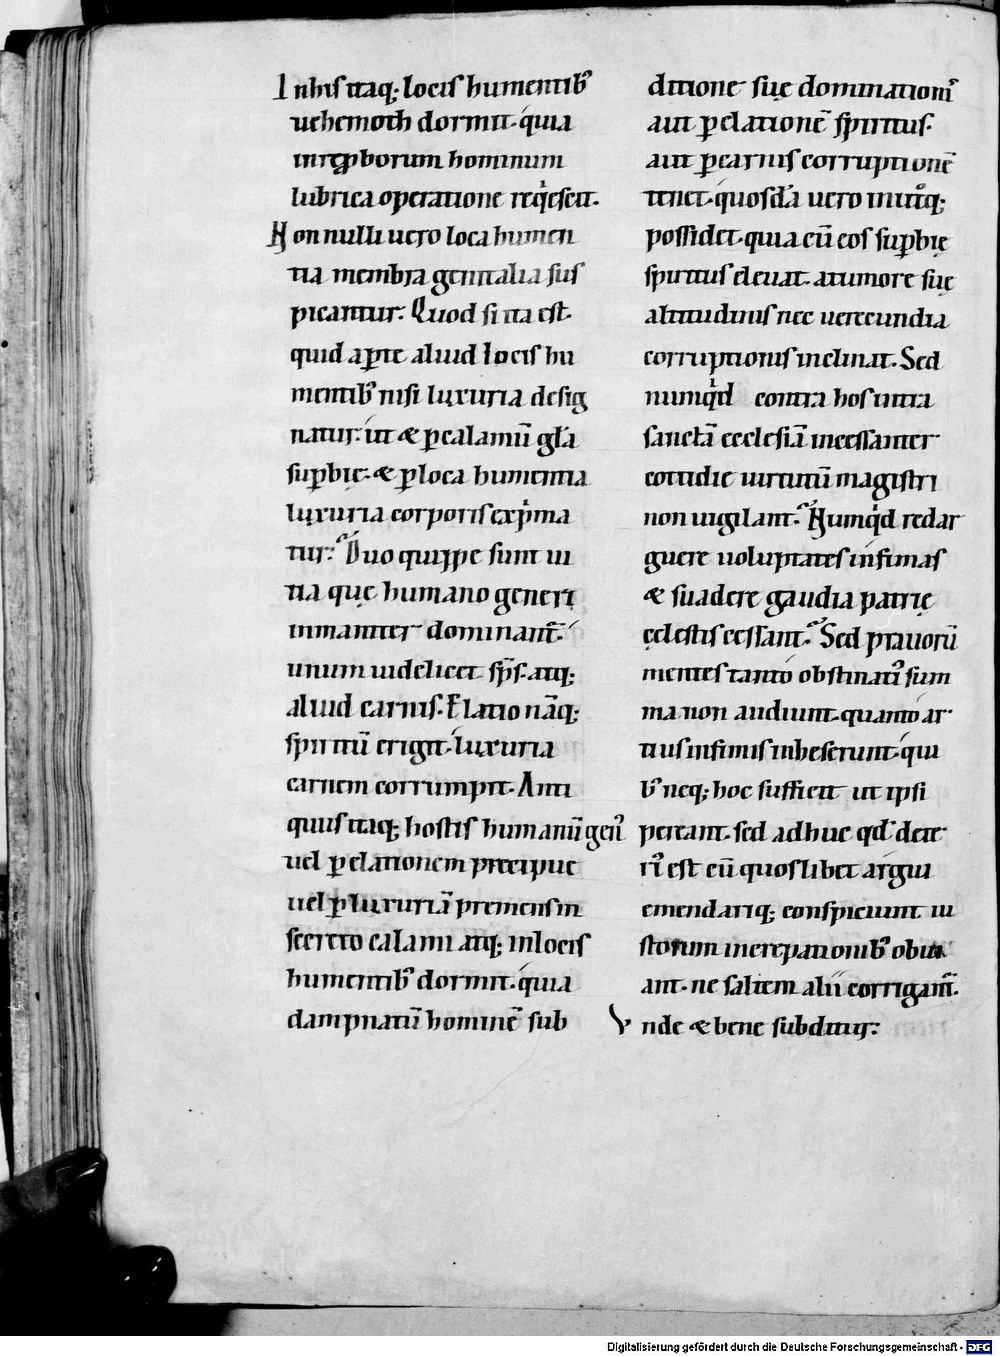 In his itaq; locis humentib᷒
uehemoth dormit. quia
in rep̱borum hominum
lubrica operatione reqͥescit.
Non nulli uero loca humen
tia membra genitalia sus
picantur. Quod si ita est.
quid aꝑte aliud locis hu
mentib᷒ nisi luxuria desig
natur. ut & ꝑ calamū gl̄a
suꝑbię. & ꝑ loca humentia
luxuria corporis exp̍ma
tur? Duo quippe sunt ui
tia quę humano generi
inmaniter dominant᷒.
unum uidelicet sp̄s. atq;
aliud carnis. Elatio nāq;
spiritū erigit. luxuria
carnem corrumpit. Anti
quus itaq; hostis humanū gen᷒
uel ꝑ elationem precipue
uel ꝑ luxuriā premens in
secreto calami atq; in locis
humentib᷒ dormit. quia
dampnatū hominē sub
ditione suę dominationis
aut ꝑ elationē spiritus.
aut ꝑ carnis corruptionē
tenet. quosdā uero in utͦq;
possidet. quia cū eos suꝑbię
spiritus eleuat. a tumore suę
altitudinis nec uerecundia
corruptionis inclinat. Sed
numqͥd contra hos intra
sanctā ecclesiā incessanter
cotidie uirtutū magistri
non uigilant? Numqͥd redar
guere uoluptates infimas
& suadere gaudia patrię
cęlestis cessant? Sed prauorū
mentes tanto obstinati᷒ sum
ma non audiunt. quanto ar
tius infimis inheserunt. qui
b᷒ neq; hoc sufficit ut ipsi
pereant. sed adhuc qd̄ dete
ri᷒ est cū quoslibet argui
emendariq; conspiciunt iu
storum increpationib᷒ obui
ant. ne saltem alii corrigant᷒.
Vnde & bene subditur:
Digitalisierung gefördert durch die Deutsche Forschungsgemeinschaft - DFG